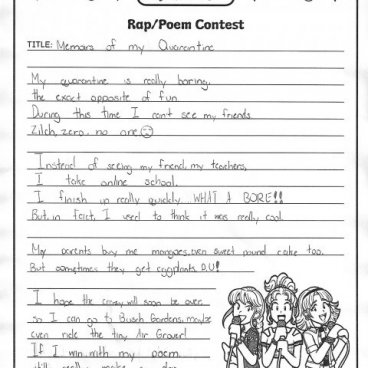 Rap/Poem Contest
TITLE: Memoirs of my Quarantine
My quarantine is really boring,
the exact opposite of fun.
During this time I can't see my friends.
Zilch, zero, no one
Instead of seeing my friend, my teachers,
I take online school.
I finish up really quickly...WHAT A BORE!!
But, in fact, I used to think it was really cool.
My parents buy me mangoes, even sweet pound cake too.
But sometimes they get eggplants. P.U!
I hope the craxy will soon be over
so I can go to Busch Gardens, maybe
even ride the tiny Air Grover!
If I win with my poem